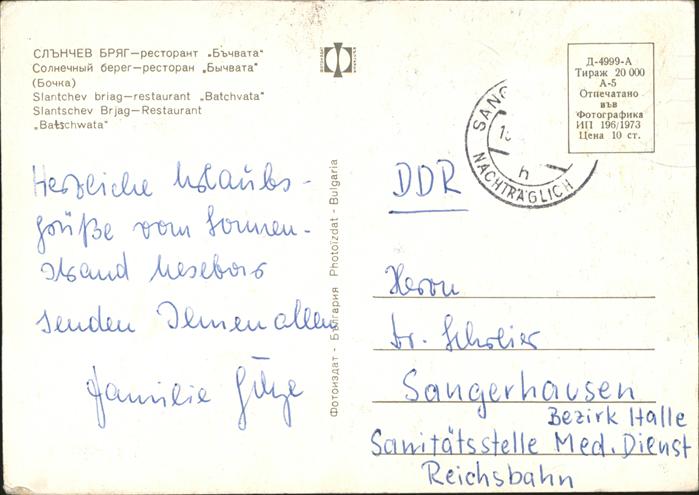 СЛЪНЧЕВ БРЯГ—ресторант „Бъчвата“
Солнечный берег—ресторан „Бычвата“
(Бочка)
Slantchev briag-restaurant „Batchvata“
Slantschev Brjag-Restaurant
„Batschwata“
Herzliche Urlaubs-
grüße vom Sonnen-
strand Nesebars
senden Ihnen allen
Familie Götze
Фотоиздат - България Photoizdat - Bulgaria
Д-4999-А
Тираж 20 000
А-5
Отпечатано
във
Фотографика
ИП 196/1973
Цена 10 ст.
SANG
h
NACHTRÄGLICH
DDR
Herrn
Dr. Schreier
Sangerhausen
Bezirk Halle
Sanitätsstelle Med. Dienst
Reichsbahn